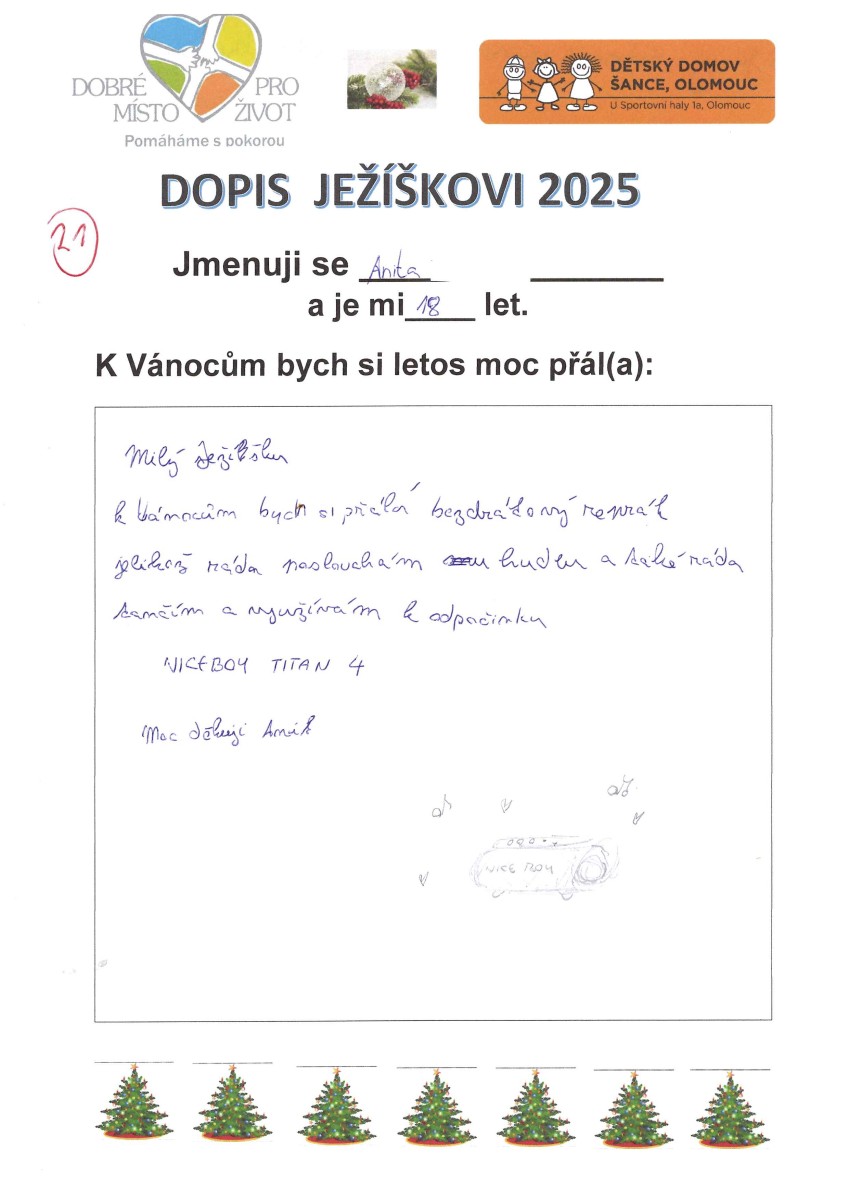 DOBRÉ PRO
MÍSTO ŽIVOT
Pomáháme s pokorou
DĚTSKÝ DOMOV
ŠANCE, OLOMOUC
U Sportovní haly 1a, Olomouc
DOPIS JEŽÍŠKOVI 2025
21
Jmenuji se Anita
a je mi 18 let.
K Vánocům bych si letos moc přál(a):
Milý Ježíšku
k Vánocům bych si přála bezdrátový reprák
jelikož ráda poslouchám hudbu a také ráda
tančím a využívám k odpočinku
NICEBOY TITAN 4
Moc děkuji Anik
NICE BOY